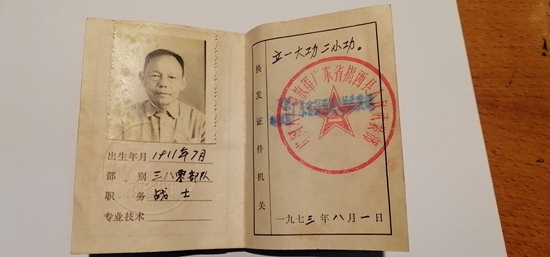 出生年月 1911年7月
部别 三八零部队
职务 战士
专业技术
立一大功二小功。
换发证件机关
中国人民解放军广东省揭西县人民武装部
一九七三年八月一日